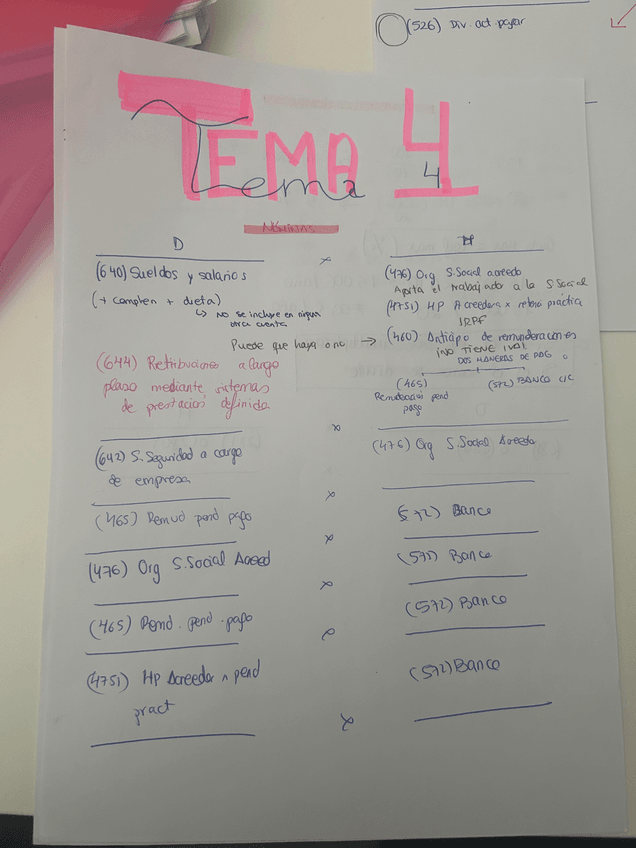 (526) Div. act. pagar
TEMA 4
Tema 4
NÓMINAS
D
H
(640) Sueldos y salarios
(+ complem + dieta)
↳ no se incluye en
otra cuenta
Puede que haya o no →
(644) Retribuciones a largo
plazo mediante sistemas
de prestación definida
(476) Org S.Social acreedo
Aporta el trabajador a la S Social
(4751) HP Acreedora x retenc práctica
IRPF
(460) Anticipo de remuneraciones
¡NO TIENE IVA!
DOS MANERAS DE PAG
(465)
Remuneracion pend
pago
(572) BANCO c/c
x
(642) S. Seguridad a cargo
de empresa
(476) Org S.Social Acreedo
x
(465) Remud pend pago
(572) Banco
x
(476) Org S.Social Acreed
(572) Banco
x
(465) Remd. pend. pago
(572) Banco
(4751) HP Acreedor pend
pract
(572) Banco
x